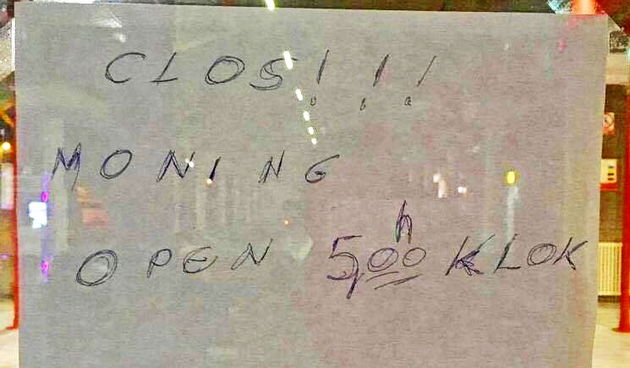 CLOS!!!
MONING
OPEN 5,00 h KLOK